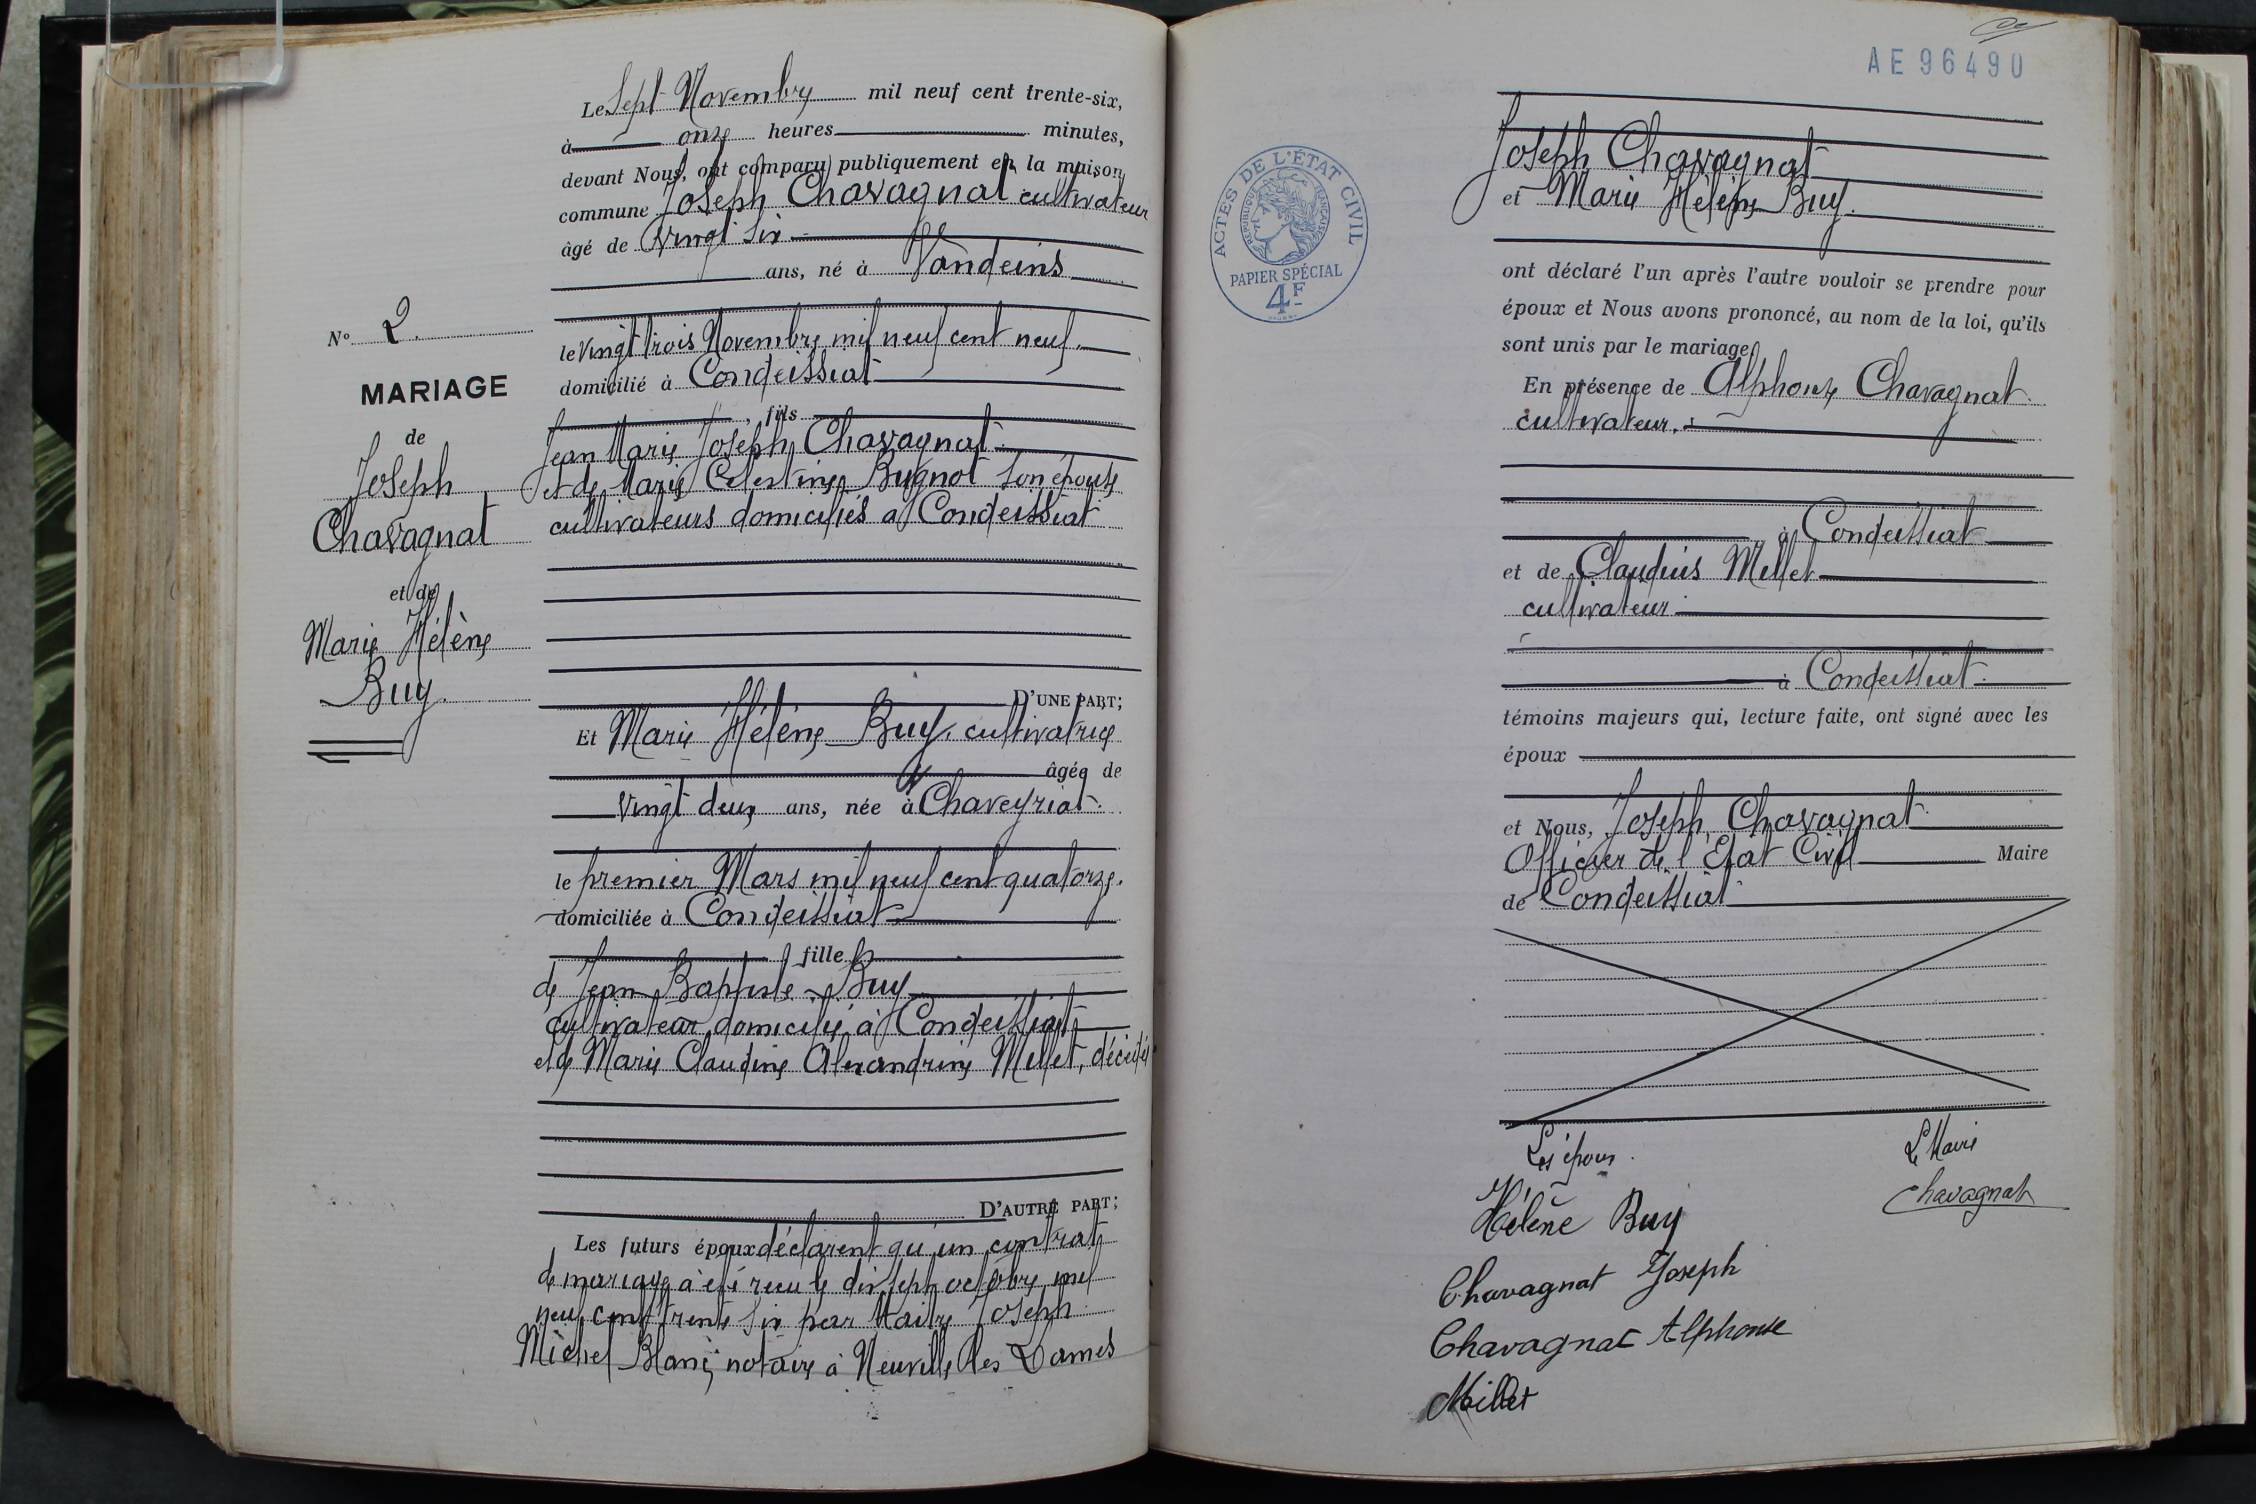 Le Sept Novembre mil neuf cent trente-six,
à onze heures minutes,
devant Nous, ont comparu publiquement en la maison
commune Joseph Chavagnat cultivateur
âgé de vingt six
ans, né à Vandeins
le vingt trois Novembre mil neuf cent neuf.
domicilié à Condeissiat
, fils
Jean Marie Joseph Chavagnat
et de Marie Celestine Bugnot son épouse
cultivateurs domiciliés à Condeissiat
D'UNE PART;
Et Marie Hélène Buy, cultivatrice
âgée de
vingt deux ans, née à Chaveyriat.
le premier Mars mil neuf cent quatorze.
domiciliée à Condeissiat
fille
de Jean Baptiste Buy
cultivateur domicilié à Condeissiat
et de Marie Claudine Alexandrine Millet, décédée
D'AUTRE PART;
Les futurs époux déclarent qu'un contrat
de mariage a été reçu le dix sept octobre mil
neuf cent trente six par Maitre Joseph
Michel Blanc, notaire à Neuville les Dames
No 2.
MARIAGE
de
Joseph
Chavagnat
et de
Marie Hélène
Buy.
AE96490
ACTES DE L'ÉTAT CIVIL
RÉPUBLIQUE FRANÇAISE
PAPIER SPÉCIAL
4F
Joseph Chavagnat
et Marie Hélène Buy.
ont déclaré l'un après l'autre vouloir se prendre pour
époux et Nous avons prononcé, au nom de la loi, qu'ils
sont unis par le mariage
En présence de Alphonse Chavagnat
cultivateur.
à Condeissiat
et de Claudius Millet
cultivateur
à Condeissiat
témoins majeurs qui, lecture faite, ont signé avec les
époux
et Nous, Joseph Chavagnat
Officier de l'Etat Civil Maire
de Condeissiat
Les époux. Le Maire
Chavagnat
Hélène Buy
Chavagnat Joseph
Chavagnat Alphonse
Millet